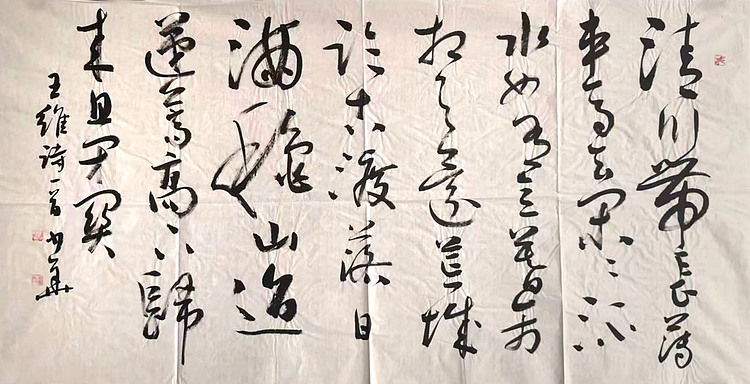 清川帶長薄
車馬去閑〻流
水如有意暮禽
相与還荒城
臨古渡落日
滿穐山迢
遞嵩高下歸
來且閉關
王維詩一首